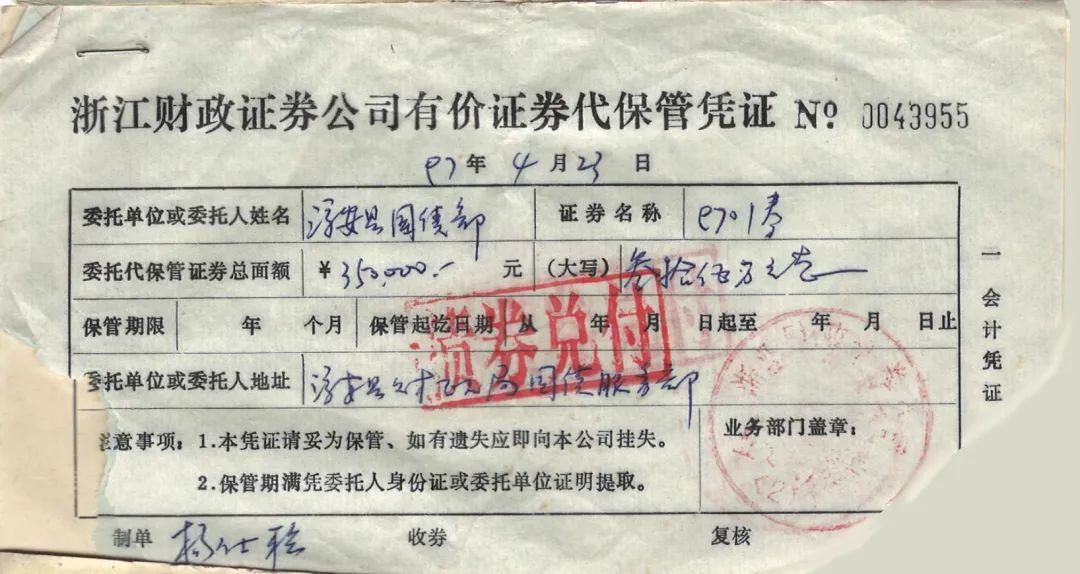 浙江财政证券公司有价证券代保管凭证 Nº 0043955
97年 4月 23日
委托单位或委托人姓名 淳安县国债部 证券名称 9701券
委托代保管证券总面额 ¥350,000.- 元 (大写) 叁拾伍万元
保管期限 年 个月 保管起讫日期 从 年 月 日起至 年 月 日止
债券兑付
委托单位或委托人地址 淳安县财政局国债服务部
注意事项：1.本凭证请妥为保管、如有遗失应即向本公司挂失。
2.保管期满凭委托人身份证或委托单位证明提取。
业务部门盖章：
制单 杨仕 收券 复核
一会计凭证